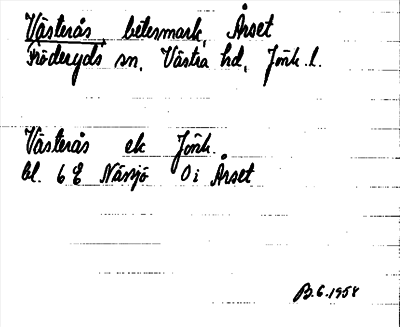 Västerås, betesmark, Årset
Fröderyds sn, Västra hd, Jönk. l.
Västerås ek Jönk.
bl. 6 E Nässjö O i Årset
B.G. 1958